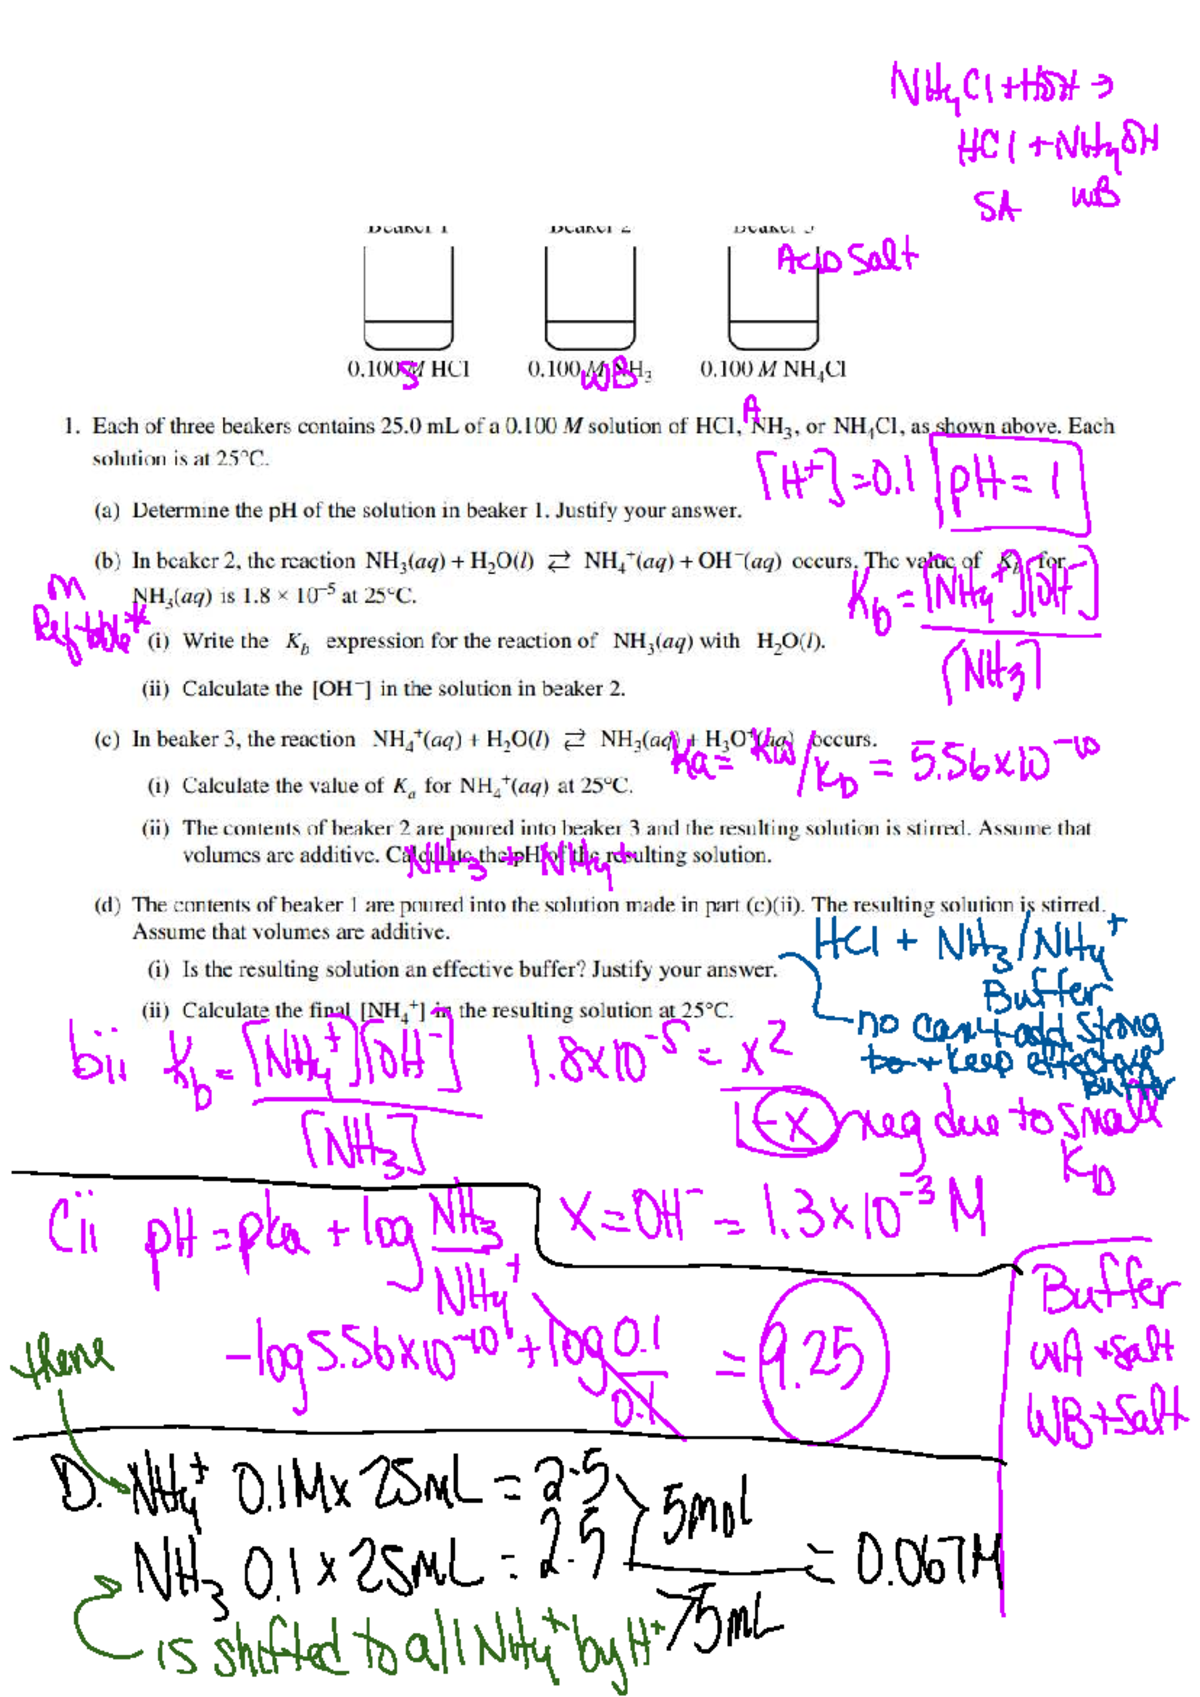 NH₄Cl + HOH →
HCl + NH₄OH
SA WB
Beaker 1 Beaker 2 Beaker 3
Acid Salt
0.100 M HCl 0.100 M NH₃ 0.100 M NH₄Cl
S WB
A
1. Each of three beakers contains 25.0 mL of a 0.100 M solution of HCl, NH₃, or NH₄Cl, as shown above. Each
solution is at 25°C.
[H⁺] = 0.1 pH = 1
(a) Determine the pH of the solution in beaker 1. Justify your answer.
(b) In beaker 2, the reaction NH₃(aq) + H₂O(l) ⇄ NH₄⁺(aq) + OH⁻(aq) occurs. The value of K_b for
NH₃(aq) is 1.8 × 10⁻⁵ at 25°C.
Ref table*
K_b = [NH₄⁺][OH⁻] / [NH₃]
(i) Write the K_b expression for the reaction of NH₃(aq) with H₂O(l).
(ii) Calculate the [OH⁻] in the solution in beaker 2.
(c) In beaker 3, the reaction NH₄⁺(aq) + H₂O(l) ⇄ NH₃(aq) + H₃O⁺(aq) occurs.
Ka = Kw/Kb = 5.56x10⁻¹⁰
(i) Calculate the value of K_a for NH₄⁺(aq) at 25°C.
(ii) The contents of beaker 2 are poured into beaker 3 and the resulting solution is stirred. Assume that
volumes are additive. Calculate the pH of the resulting solution.
NH₃ + NH₄⁺
(d) The contents of beaker 1 are poured into the solution made in part (c)(ii). The resulting solution is stirred.
Assume that volumes are additive.
HCl + NH₃/NH₄⁺
Buffer
(i) Is the resulting solution an effective buffer? Justify your answer.
(ii) Calculate the final [NH₄⁺] in the resulting solution at 25°C.
no can't add strong
to + keep effective
Buffer
bii K_b = [NH₄⁺][OH⁻] / [NH₃] 1.8x10⁻⁵ = x² / 1-x neg due to small
Kb
x = OH⁻ = 1.3x10⁻³ M
Cii pH = pka + log NH₃ / NH₄⁺
-log 5.56x10⁻¹⁰ + log 0.1 / 0.1 = 9.25
Buffer
WA + Salt
WB + Salt
there
D. NH₄⁺ 0.1M x 25mL = 2.5
NH₃ 0.1 x 25mL = 2.5
5mol / 75mL = 0.067M
is shifted to all NH₄⁺ by H⁺